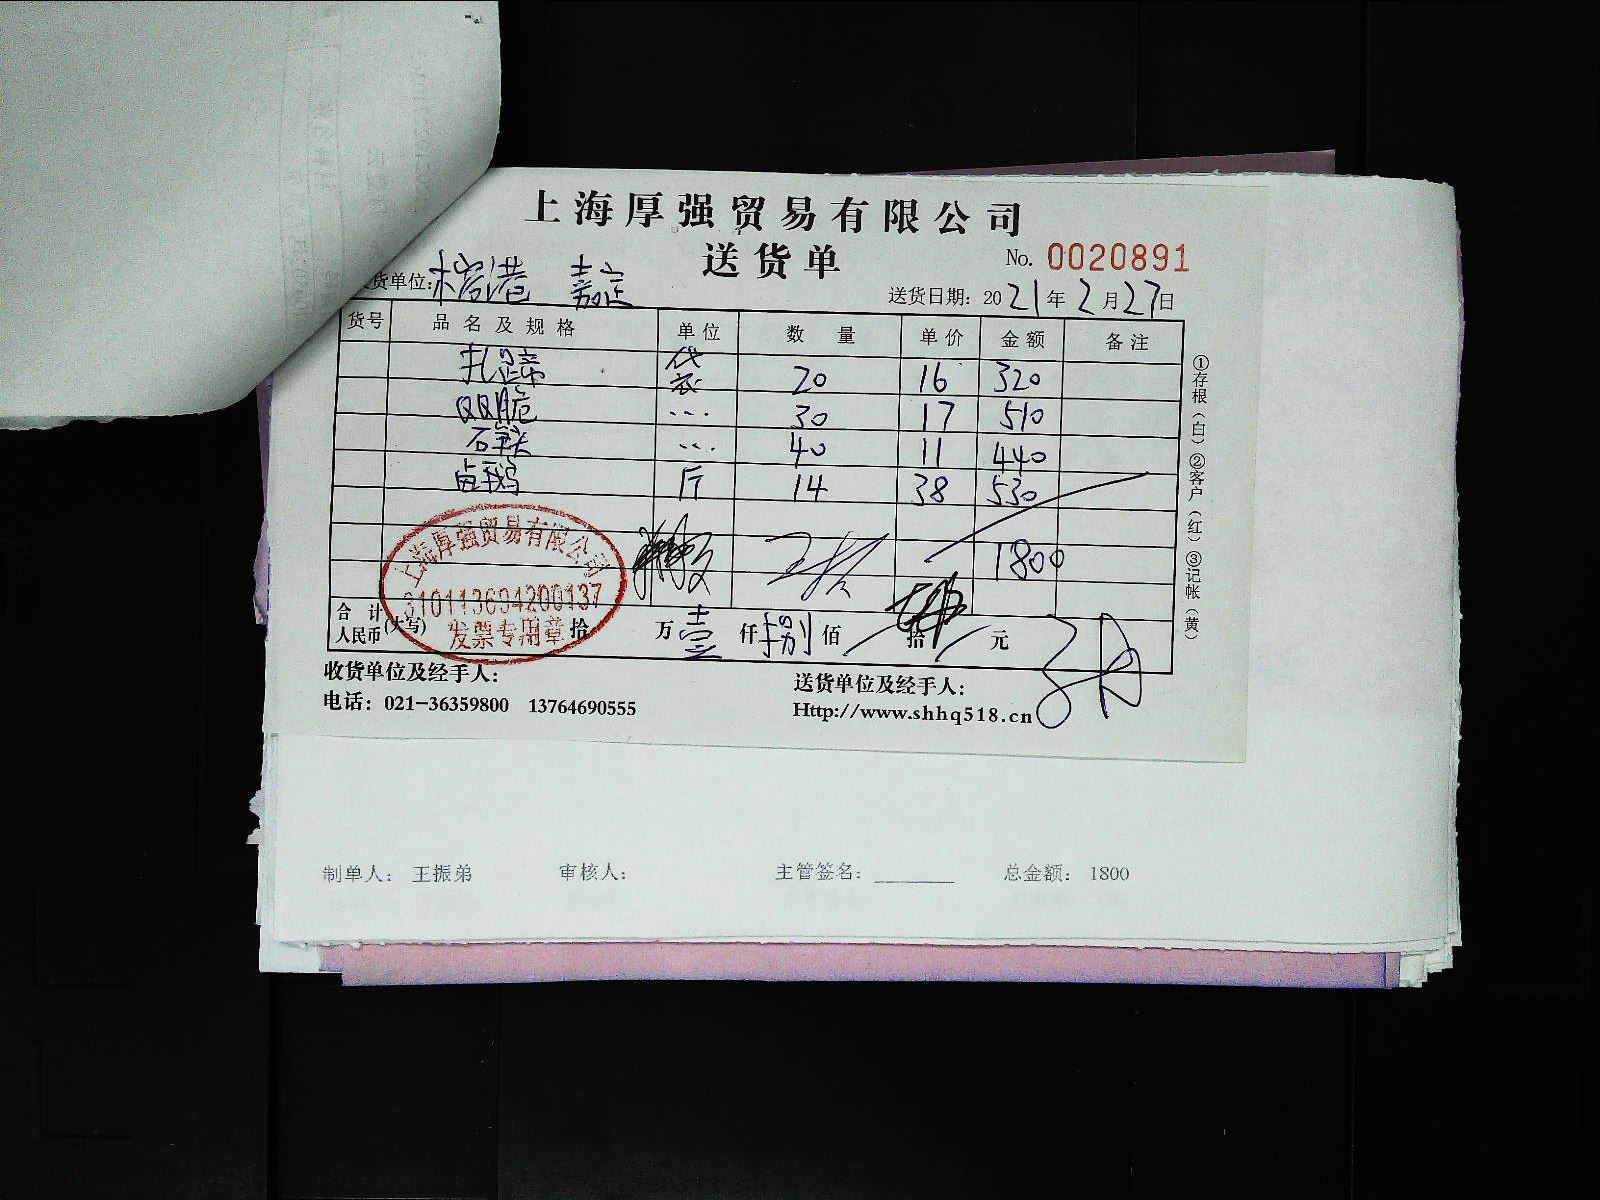 上海厚强贸易有限公司
送货单
No. 0020891
货单位: 嘉定
送货日期: 2021年2月27日
货号 品名及规格 单位 数量 单价 金额 备注
扎蹄 袋 20 16 320
QQ脆 .... 30 17 510
.... 40 11 440
卤鹅 斤 14 38 530
1800
上海厚强贸易有限公司
310113694200137
发票专用章
合计人民币(大写) 拾 万 壹 仟 捌 佰 拾 元
收货单位及经手人:
送货单位及经手人:
电话: 021-36359800 13764690555
Http://www.shhq518.cn
①存根(白)②客户(红)③记帐(黄)
制单人: 王振弟 审核人: 主管签名: ________ 总金额: 1800